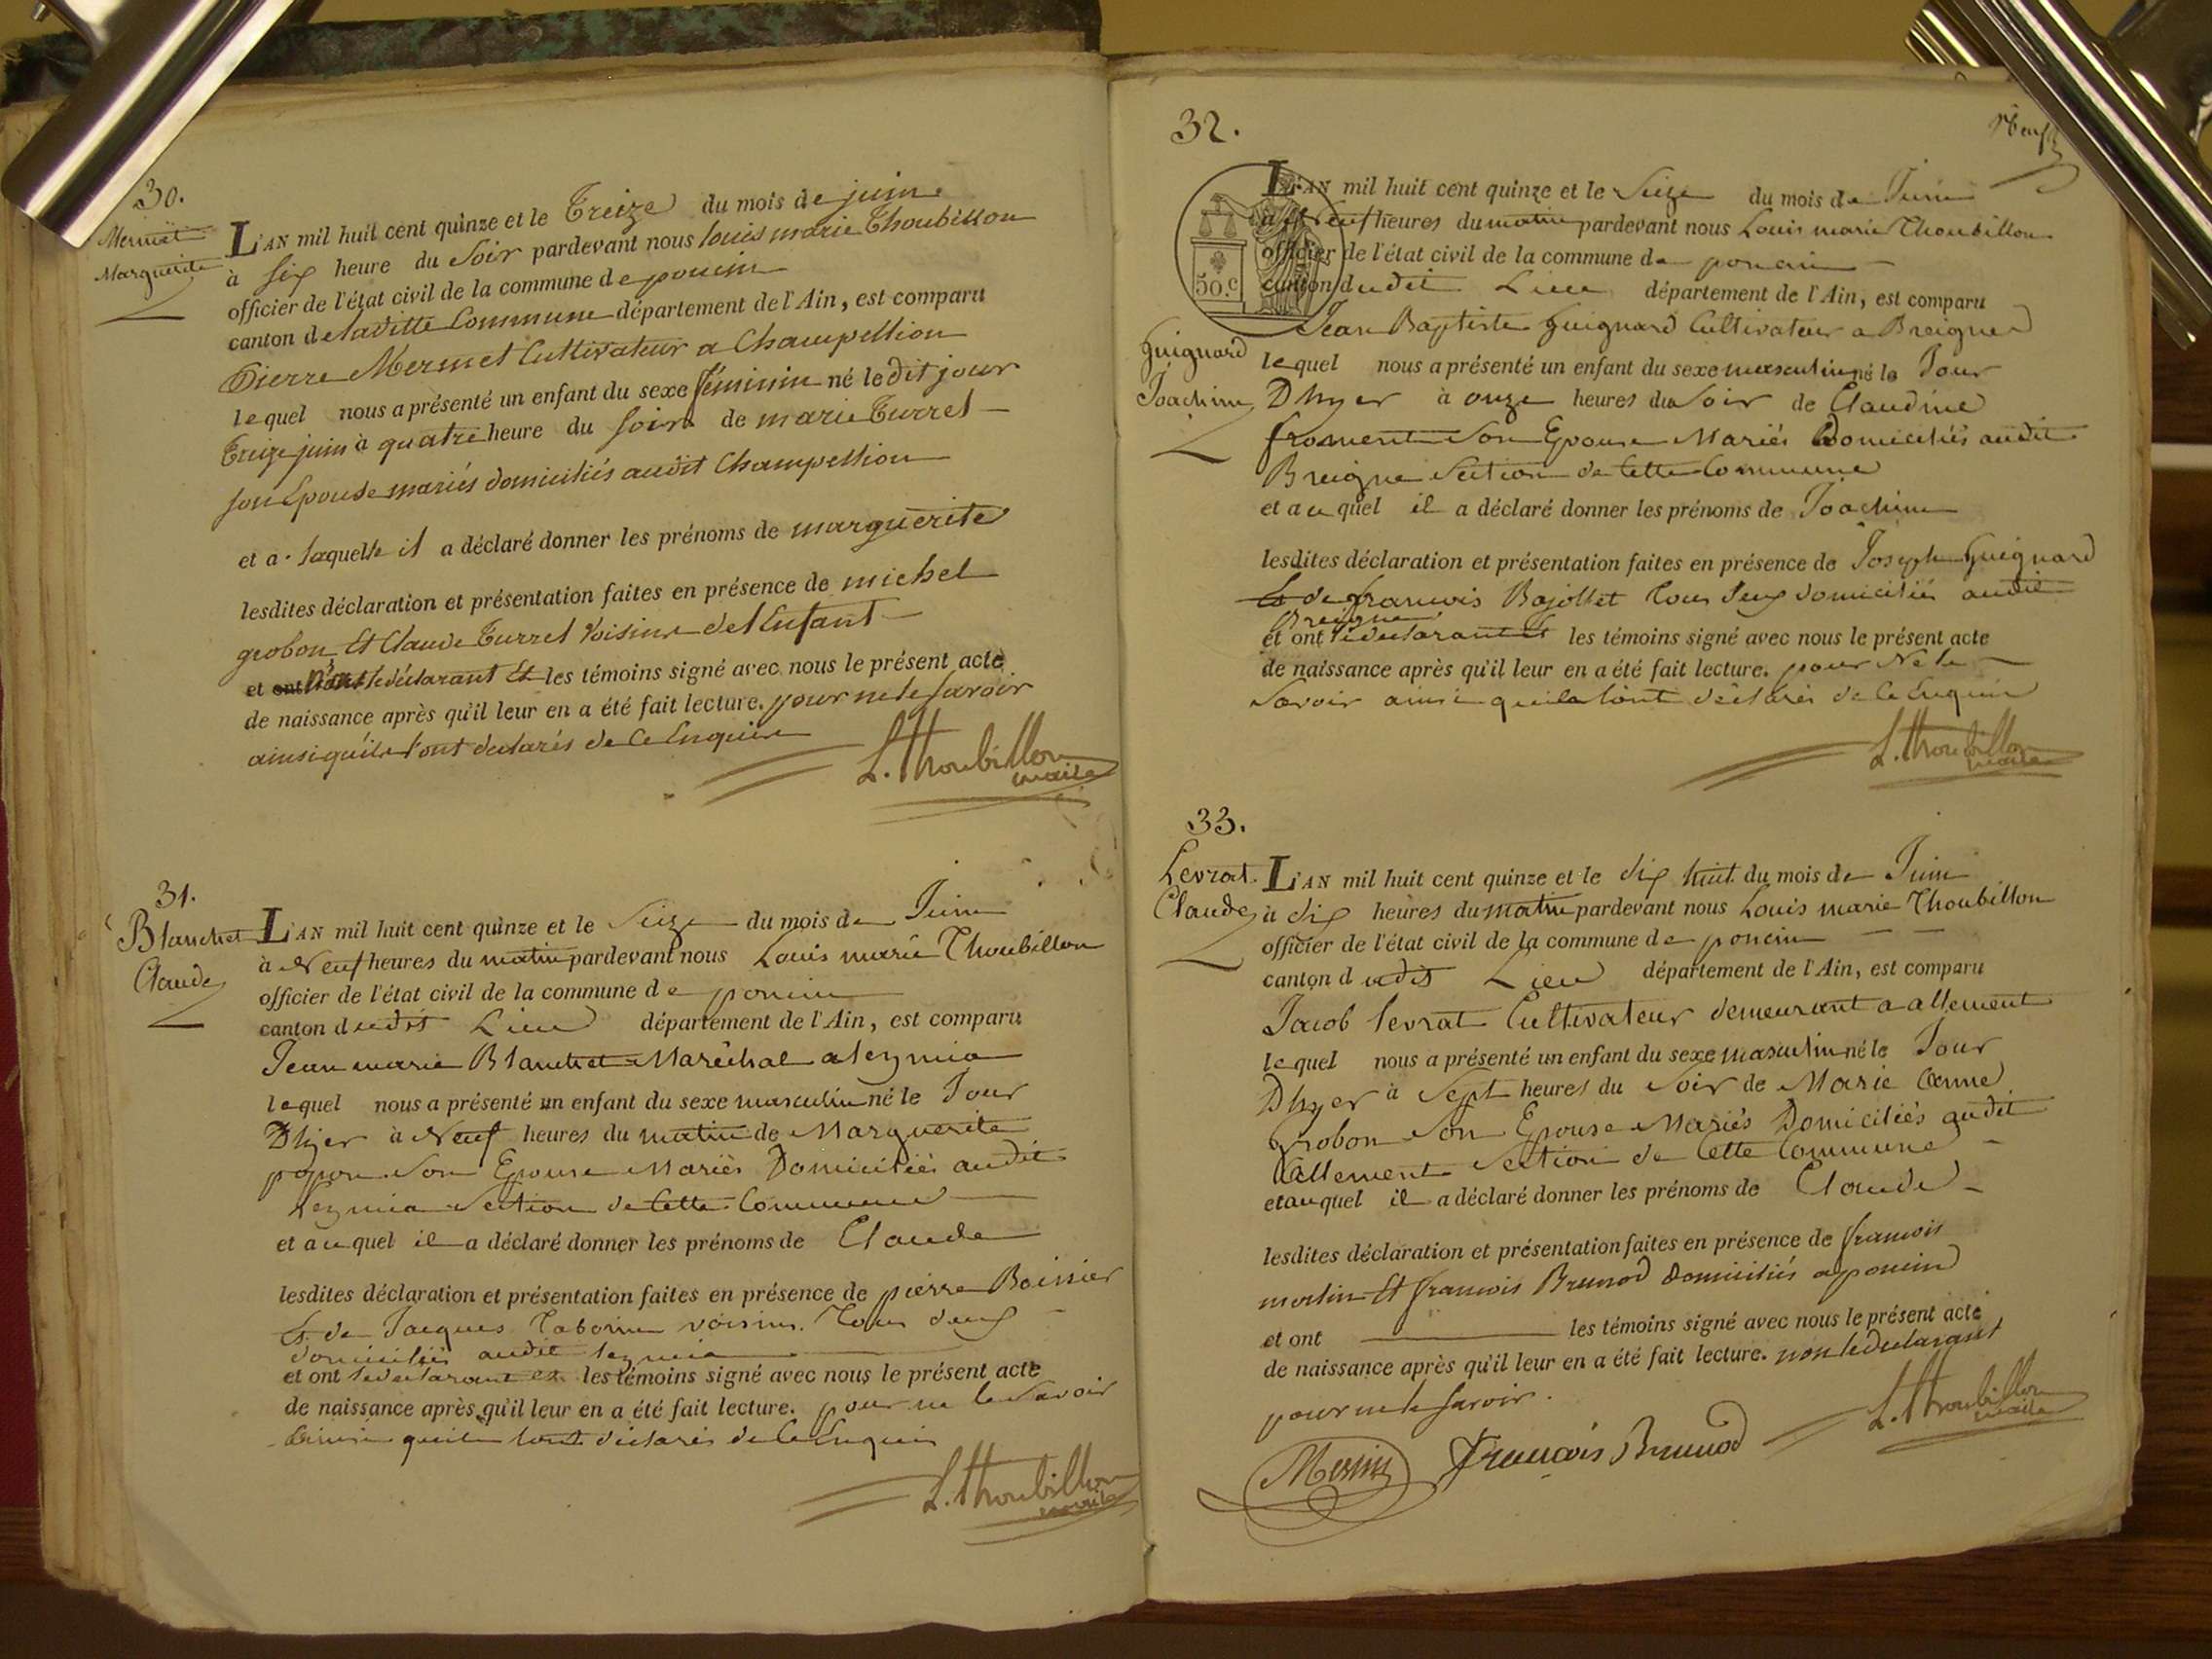 30.
Mermet
Marguerite
L'AN mil huit cent quinze et le Treize du mois de juin
à six heure du Soir pardevant nous louis marie Thoubillon
officier de l'état civil de la commune de poncin
canton de laditte Commune département de l'Ain, est comparu
Pierre Mermet Cultivateur a Champellion
lequel nous a présenté un enfant du sexe féminin né le dit jour
Treize juin à quatre heure du soir de marie Turrel
son Epouse mariés domiciliés audit Champellion
et a laquelle il a déclaré donner les prénoms de marguerite
lesdites déclaration et présentation faites en présence de michel
grobon Et Claude Turrel Voisins de l'Enfant
et ont n'ont le déclarant Et les témoins signé avec nous le présent acte
de naissance après qu'il leur en a été fait lecture. pour ne le savoir
ainsi qu'ils l'ont declarés de Ce Enquis
L. Thoubillon
maire
31.
Blanchet
Claude
L'AN mil huit cent quinze et le Seize du mois de Juin
à Neuf heures du matin pardevant nous Louis marie Thoubillon
officier de l'état civil de la commune de poncin
canton dudit Lieu département de l'Ain, est comparu
Jean marie Blanchet Maréchal a leymia
lequel nous a présenté un enfant du sexe masculin né le Jour
Dhyer à Neuf heures du matin de Marguerite
popon son Epouse Mariés Domiciliés audit
Leymia Section de Cette Commune
et auquel il a déclaré donner les prénoms de Claude
lesdites déclaration et présentation faites en présence de pierre Boissier
Et de Jacques Tabouin voisins. Tous deux
domiciliés audit leymia
et ont le declarant et les témoins signé avec nous le présent acte
de naissance après qu'il leur en a été fait lecture. pour ne le Savoir
ainsi quils lont déclarés de Ce Enquis
L. Thoubillon
maire
32.
Neuf
50.c
Guignard
Joachim
L'AN mil huit cent quinze et le Seize du mois de Juin
a Neuf heures du matin pardevant nous Louis marie Thoubillon
officier de l'état civil de la commune de poncin
canton dudit Lieu département de l'Ain, est comparu
Jean Baptiste Guignard Cultivateur a Breigne
lequel nous a présenté un enfant du sexe masculin né le Jour
Dhyer à onze heures du Soir de Claudine
froment son Epouse Mariés Domiciliés audit
Breigne Section de Cette Commune
et auquel il a déclaré donner les prénoms de Joachim
lesdites déclaration et présentation faites en présence de Joseph Guignard
Et de francois Bojollet Tous deux domiciliés audit
Breigne
et ont le declarant Et les témoins signé avec nous le présent acte
de naissance après qu'il leur en a été fait lecture. pour Ne le
Savoir ainsi quils lont déclarés de Ce Enquis
L. Thoubillon
maire
33.
Levrat
Claude
L'AN mil huit cent quinze et le dix huit du mois de Juin
à dix heures du matin pardevant nous Louis marie Thoubillon
officier de l'état civil de la commune de poncin
canton dudit Lieu département de l'Ain, est comparu
Jacob levrat Cultivateur demeurant a allement
lequel nous a présenté un enfant du sexe masculin né le Jour
Dhyer à Sept heures du Soir de Marie Anne
grobon son Epouse Mariés Domiciliés audit
Allement Section de Cette Commune
et auquel il a déclaré donner les prénoms de Claude
lesdites déclaration et présentation faites en présence de francois
Et francois Brunod domiciliés a poncin
et ont les témoins signé avec nous le présent acte
de naissance après qu'il leur en a été fait lecture. non le declarant
pour ne le savoir.
francois Brunod
L. Thoubillon
maire